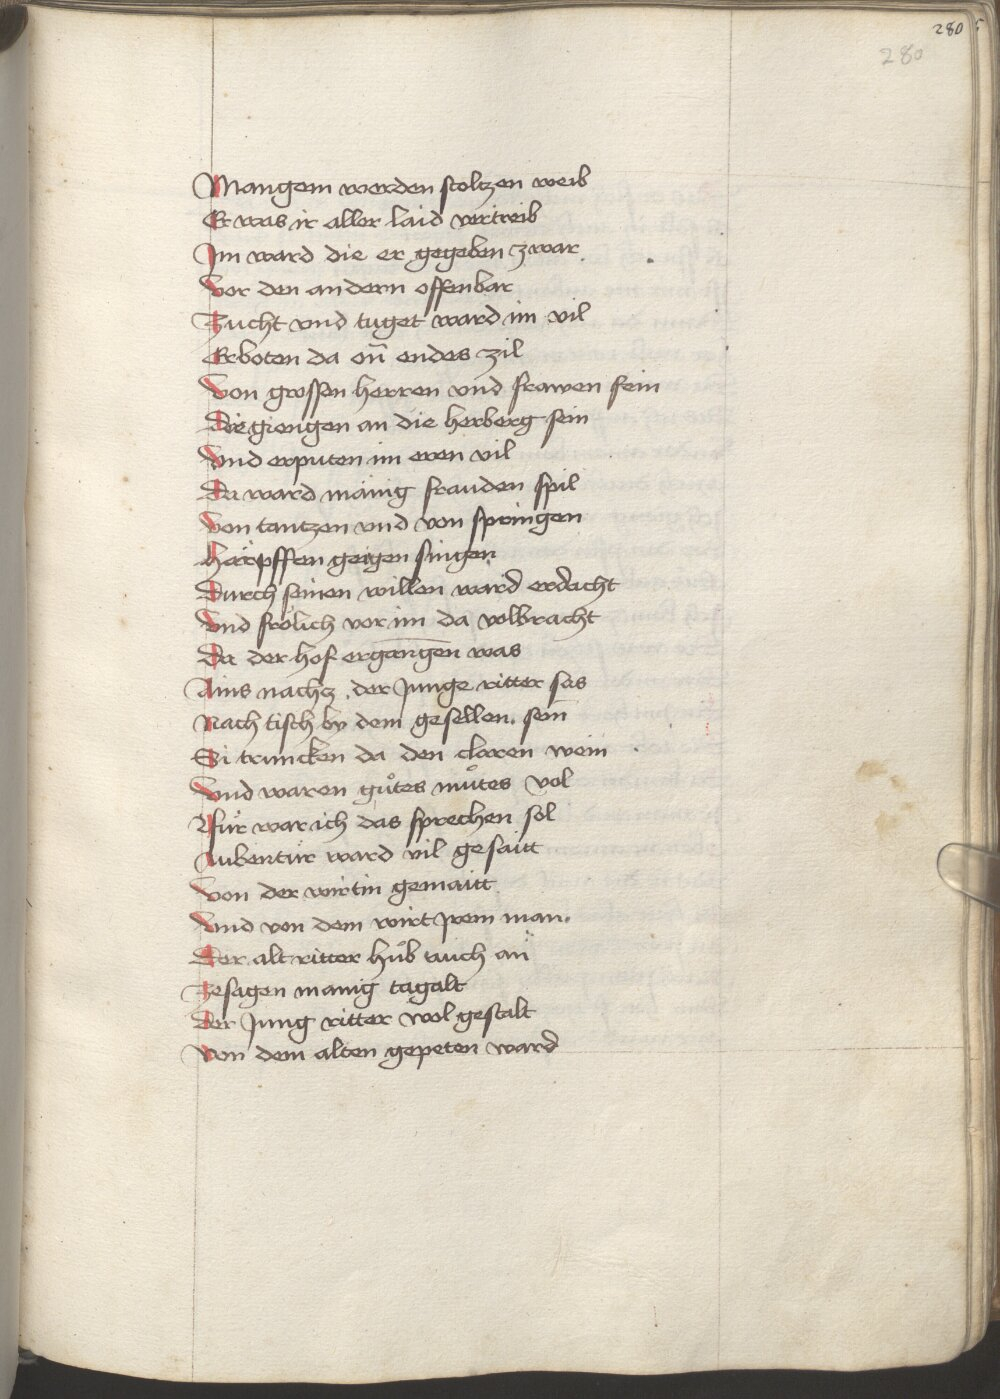 280
280
Mangem werden stoltzen weib
Er was ir aller laid vertreib
Im ward die er gegeben zwar
Vor den andern offenbar
Zucht vnd tuget ward im vil
Erboten da on̄ endes zil
Von grossen herren vnd frawen fein
Die giengen an die herberg sein
Vnd erputen im eren vil
Da ward mänig frauden spil
Von tantzen vnd von springen
Härpffen geigen singen
Durch seinen willen ward erdacht
Vnd frölich vor im da volbracht
Da der hof ergangen was
Ains nachtz der Junge ritter sas
Nach tisch by dem gesellen sein
Si truncken da den claren wein
Vnd waren gůtes můtes vol
Für war ich das sprechen sol
Aubentür ward vil gesaitt
Von der wirtin gemaitt
Vnd von dem wirt jrem man
Der alt ritter hůb auch an
Ze sagen manig tagalt
Der Jung ritter wol gestalt
Von dem alten gepeten ward